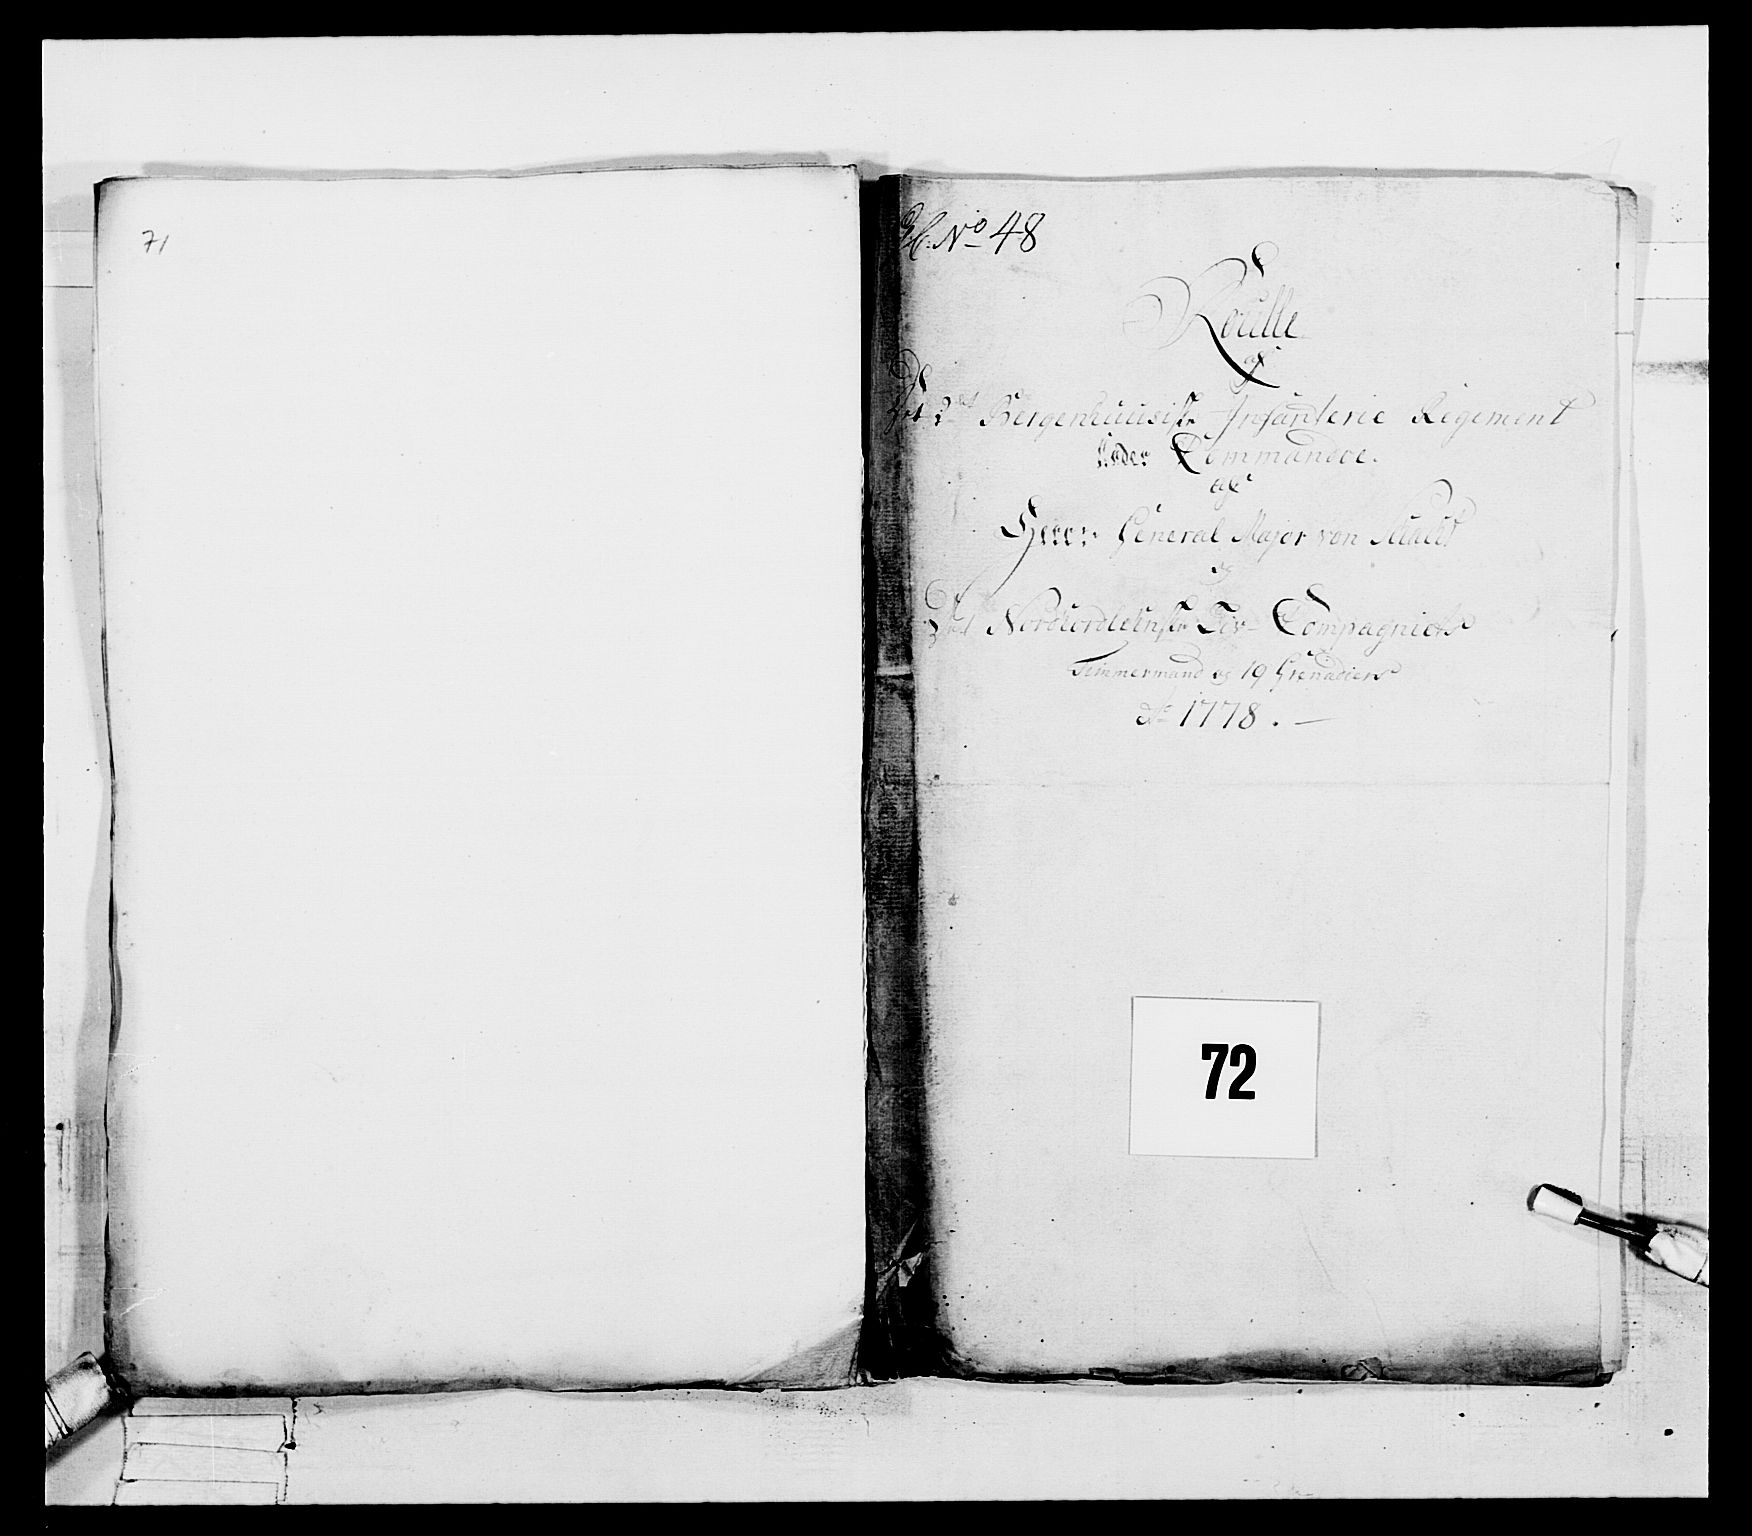 71
No 48
Roulle
af
Det 2det Bergenhuusiske Infanterie Regiment
under Commandoe
af
Herr General Major von
og
Det Nordhordlehnske Liv Compagniets
Timmermand og 19 Grenadiers
Ao 1778. —
72